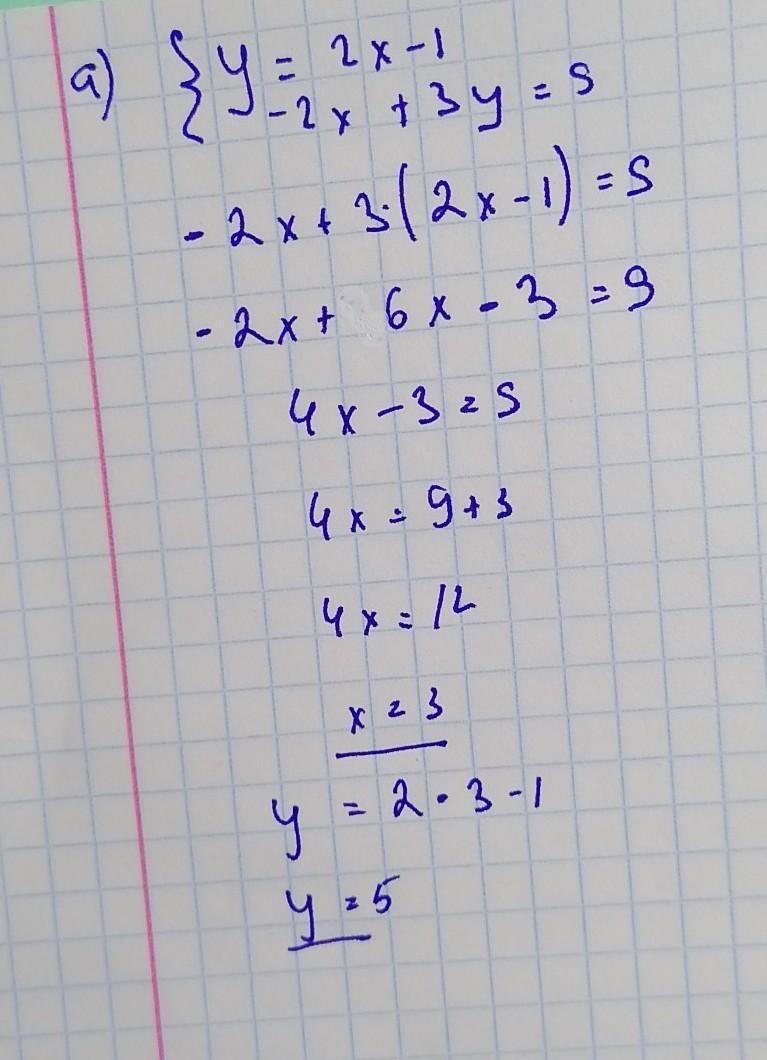 a) { y = 2x-1
-2x + 3y = 9
-2x + 3·(2x-1) = 9
-2x + 6x - 3 = 9
4x - 3 = 9
4x = 9+3
4x = 12
x = 3
y = 2·3-1
y = 5